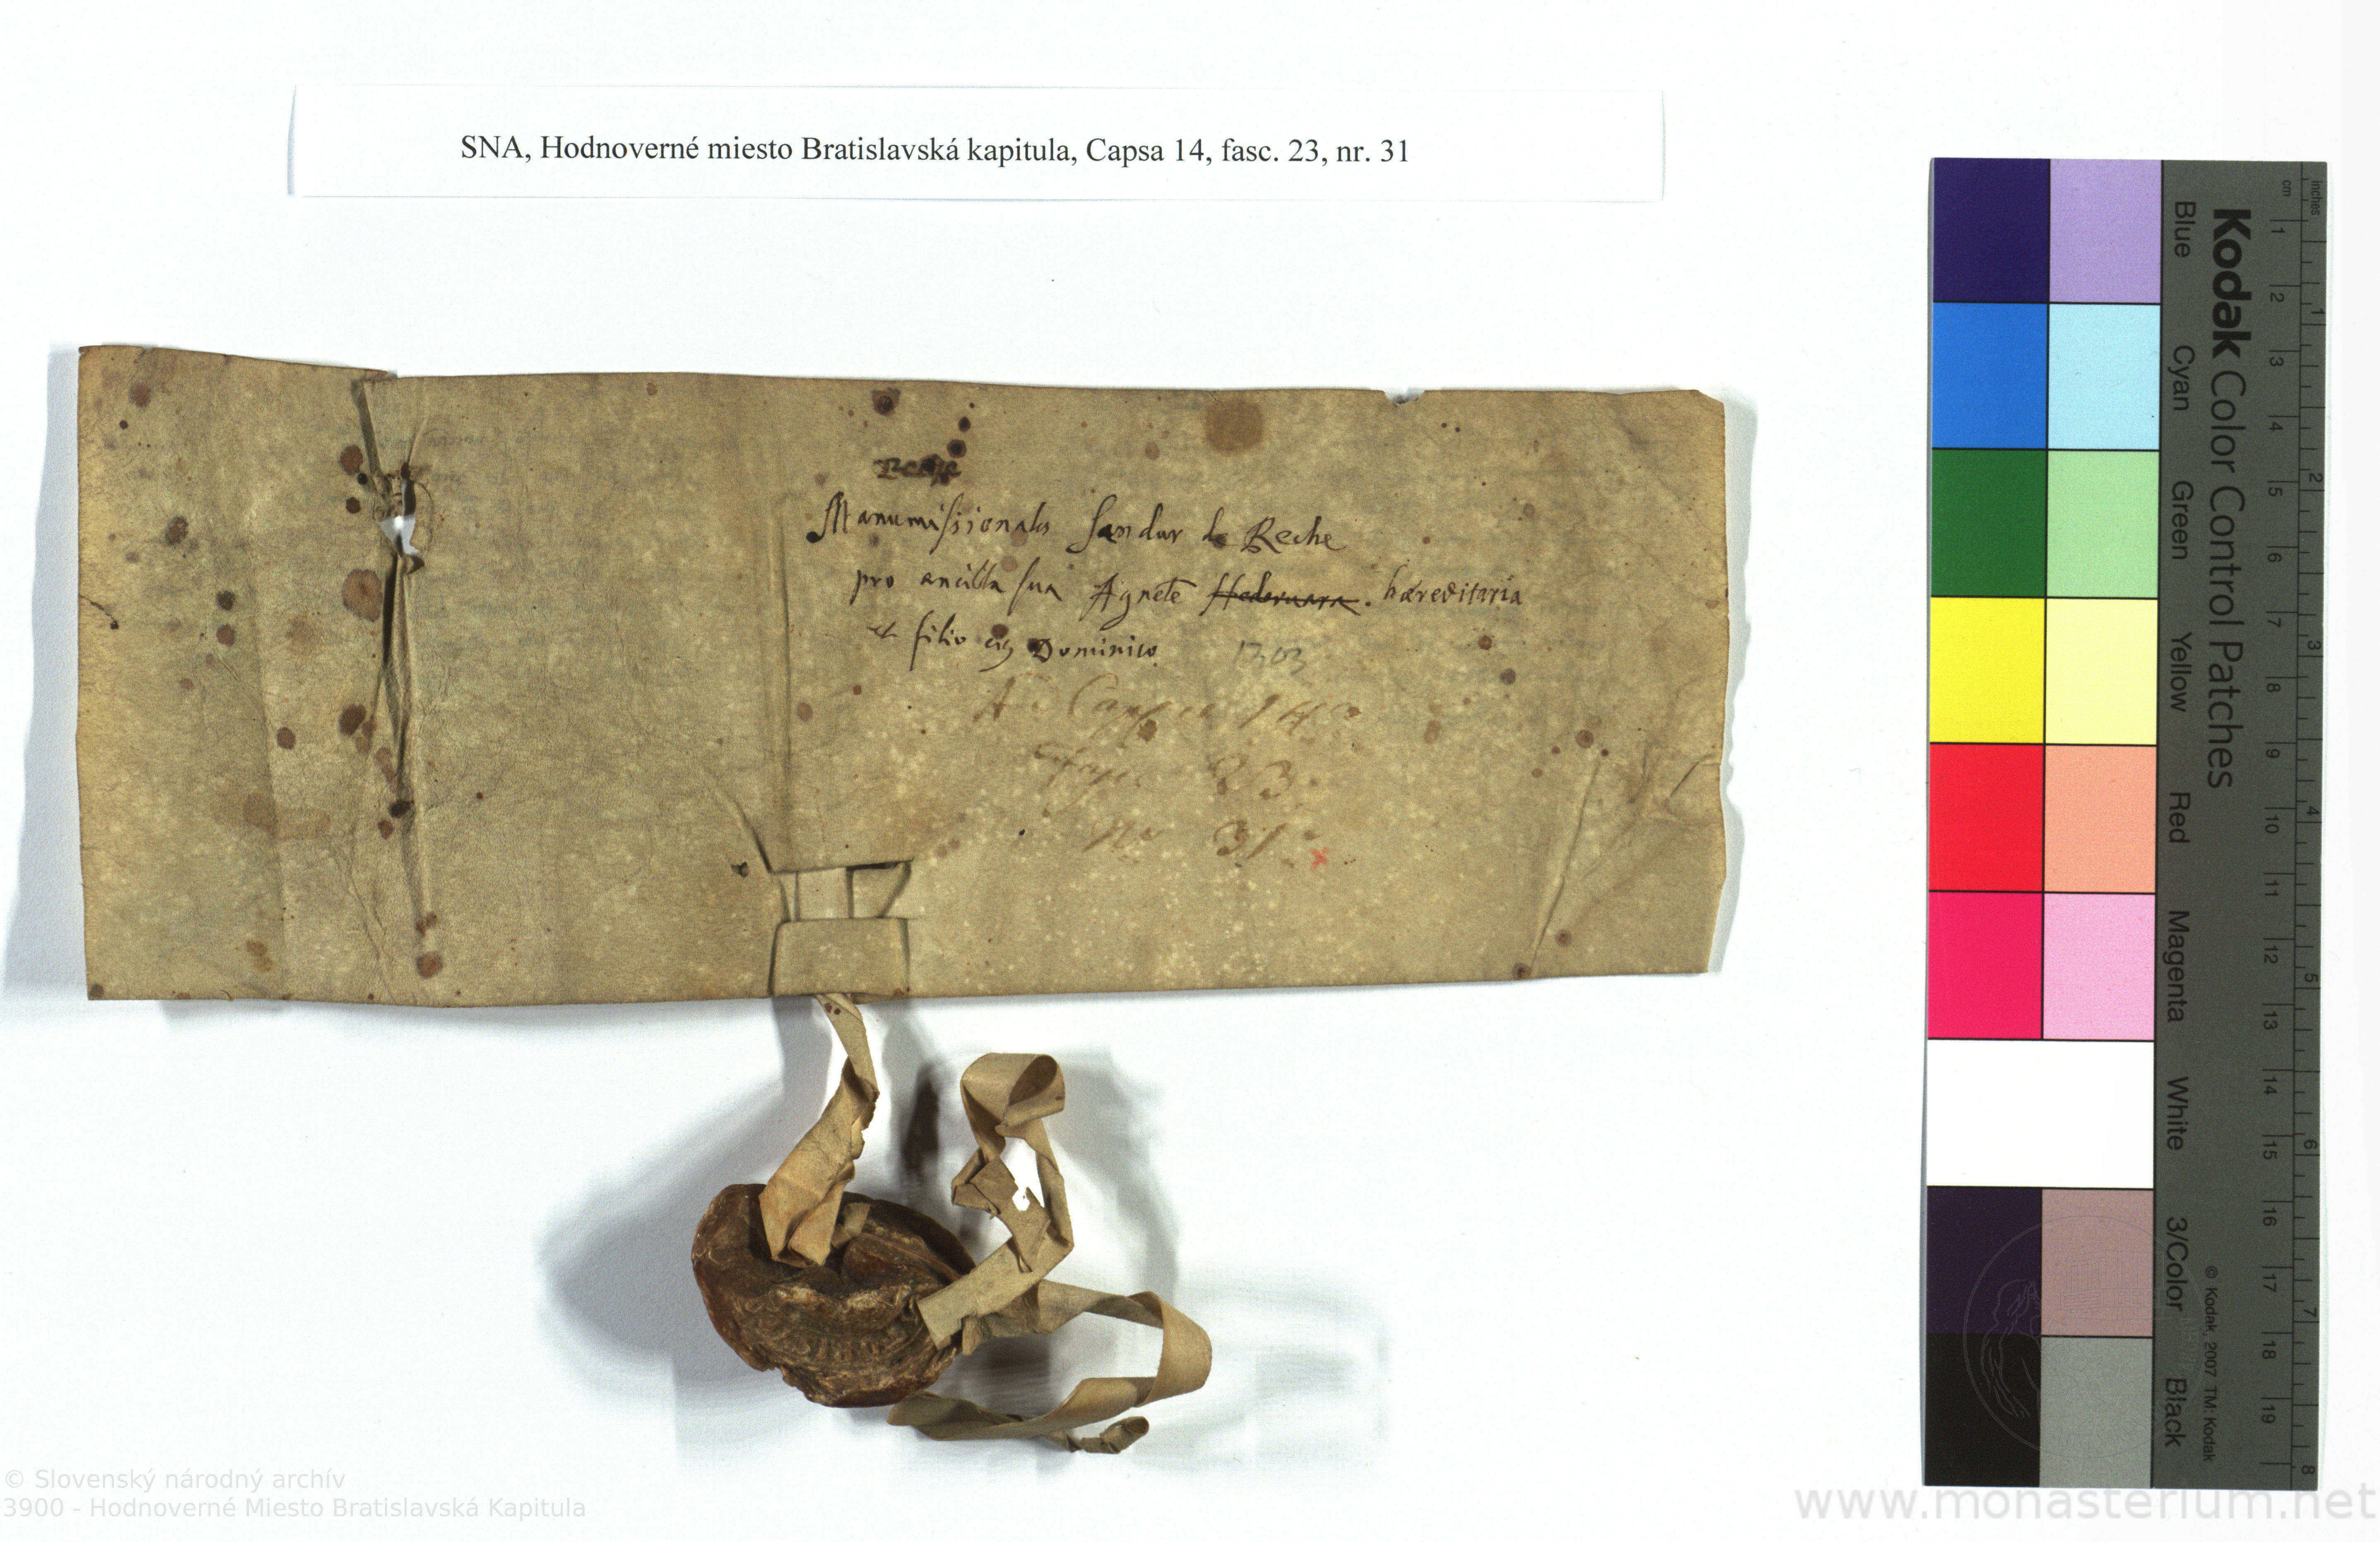 SNA, Hodnoverné miesto Bratislavská kapitula, Capsa 14, fasc. 23, nr. 31
Reche
Manumissionales Sandur de Reche
pro ancilla sua Agnete Hedervara. hæreditaria
et filio eius Dominico 1303
A Capsa 14a
fasc 23.
Nr 31. x
Kodak Color Control Patches
Blue Cyan Green Yellow Red Magenta White 3/Color Black
inches 1 2 3 4 5 6 7 8
cm 1 2 3 4 5 6 7 8 9 10 11 12 13 14 15 16 17 18 19
© Kodak, 2007 TM: Kodak
© Slovenský národný archív
3900 - Hodnoverné Miesto Bratislavská Kapitula
www.monasterium.net